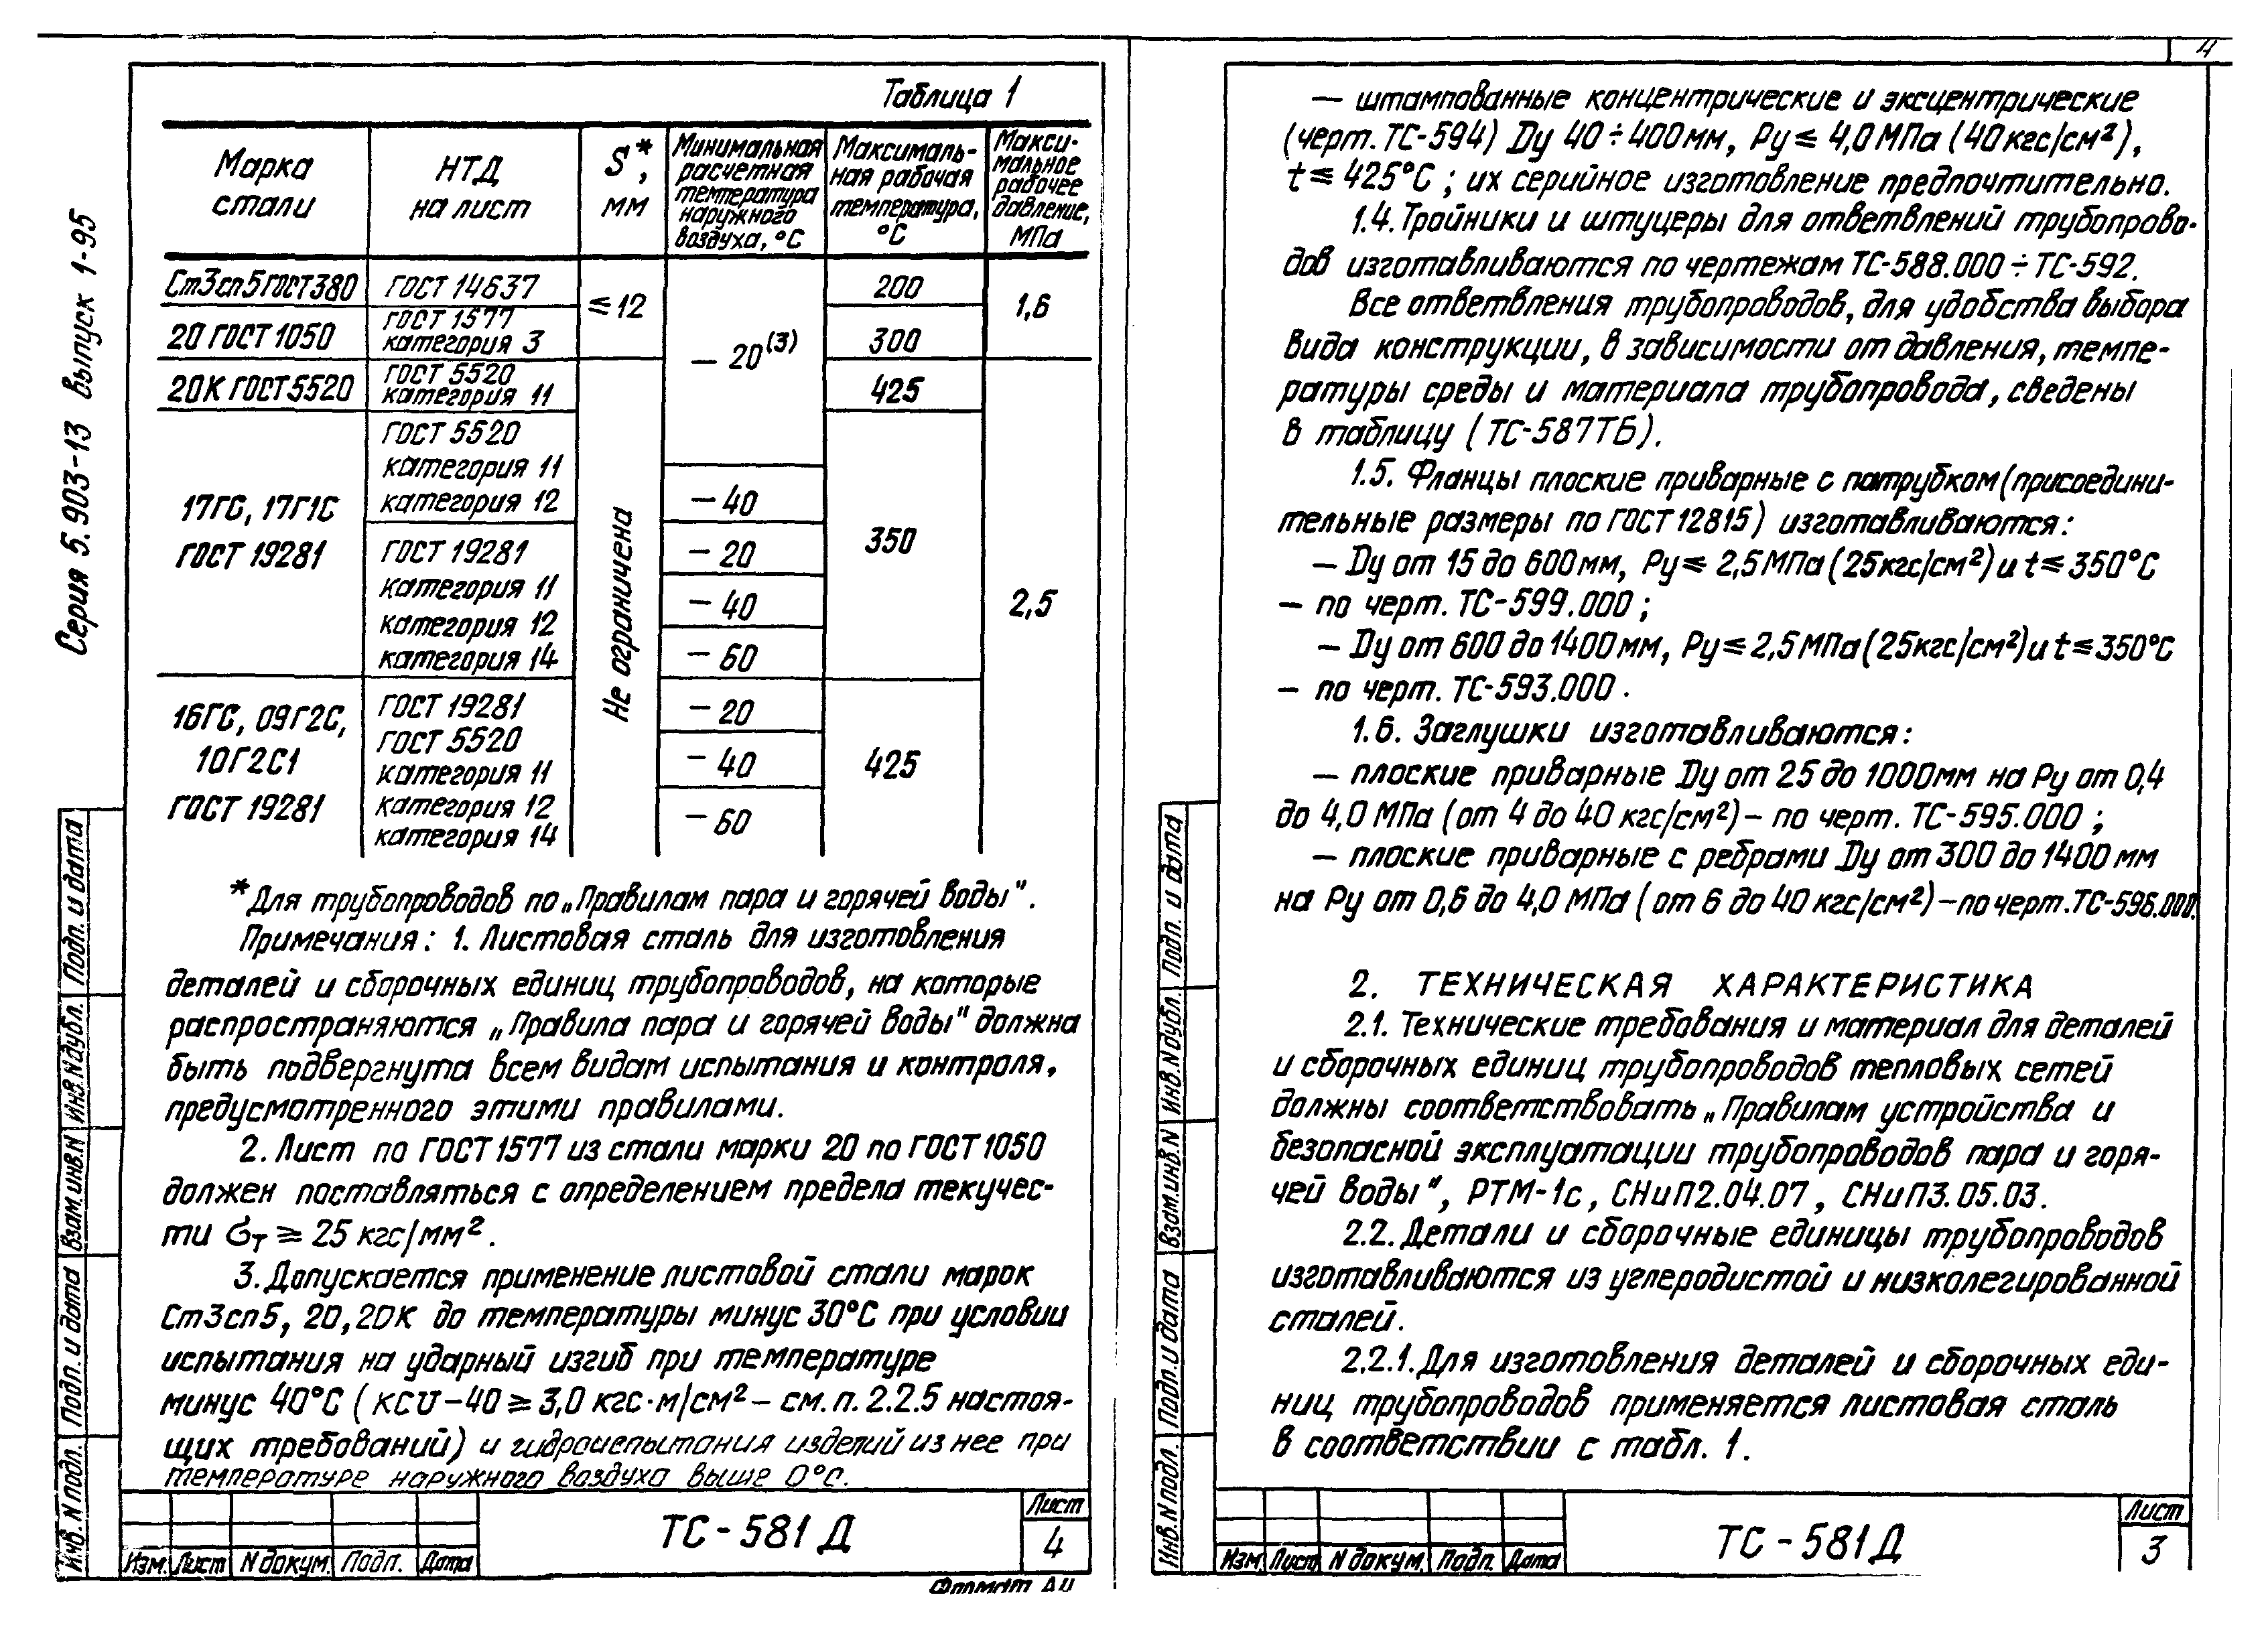 Серия 5.903-13 Выпуск 1-95
Таблица 1
Марка стали
НТД на лист
S*, мм
Минимальная расчетная температура наружного воздуха, °С
Максималь-ная рабочая температура, °С
Макси-мальное рабочее давление, МПа
Ст3сп5 ГОСТ380
ГОСТ 14637
≤ 12
− 20(3)
200
1,6
20 ГОСТ 1050
ГОСТ 1577
категория 3
300
20К ГОСТ5520
ГОСТ 5520
категория 11
Не ограничена
425
2,5
17ГС, 17Г1С
ГОСТ 19281
ГОСТ 5520
категория 11
категория 12
− 40
350
ГОСТ 19281
категория 11
категория 12
категория 14
− 20
− 40
− 60
16ГС, 09Г2С,
10Г2С1
ГОСТ 19281
ГОСТ 19281
ГОСТ 5520
категория 11
категория 12
категория 14
− 20
− 40
− 60
425
*Для трубопроводов по „Правилам пара и горячей воды".
Примечания: 1. Листовая сталь для изготовления
деталей и сборочных единиц трубопроводов, на которые
распространяются „Правила пара и горячей воды" должна
быть подвергнута всем видам испытания и контроля,
предусмотренного этими правилами.
2. Лист по ГОСТ 1577 из стали марки 20 по ГОСТ 1050
должен поставляться с определением предела текучес-
ти σт ≥ 25 кгс/мм².
3. Допускается применение листовой стали марок
Ст3сп5, 20, 20К до температуры минус 30°С при условии
испытания на ударный изгиб при температуре
минус 40°С (KCU−40 ≥ 3,0 кгс·м/см² − см. п. 2.2.5 настоя-
щих требований) и гидроиспытания изделий из нее при
температуре наружного воздуха выше 0°С.
Подп. и дата
Инв. N дубл.
Взам. инв. N
Подп. и дата
Инв. N подл.
Изм. Лист N докум. Подп. Дата
ТС - 581 Д
Лист
4
Формат А4
4
— штампованные концентрические и эксцентрические
(черт. ТС-594) Ду 40 ÷ 400 мм, Ру ≤ 4,0 МПа (40 кгс/см²),
t ≤ 425°С ; их серийное изготовление предпочтительно.
1.4. Тройники и штуцеры для ответвлений трубопрово-
дов изготавливаются по чертежам ТС-588.000 ÷ ТС-592.
Все ответвления трубопроводов, для удобства выбора
вида конструкции, в зависимости от давления, темпе-
ратуры среды и материала трубопровода, сведены
в таблицу (ТС-587ТБ).
1.5. Фланцы плоские приварные с патрубком (присоедини-
тельные размеры по ГОСТ 12815) изготавливаются:
— Ду от 15 до 600 мм, Ру ≤ 2,5 МПа (25 кгс/см²) и t ≤ 350°С
— по черт. ТС-599.000;
— Ду от 600 до 1400 мм, Ру ≤ 2,5 МПа (25 кгс/см²) и t ≤ 350°С
— по черт. ТС-593.000.
1.6. Заглушки изготавливаются:
— плоские приварные Ду от 25 до 1000 мм на Ру от 0,4
до 4,0 МПа (от 4 до 40 кгс/см²) — по черт. ТС-595.000 ;
— плоские приварные с ребрами Ду от 300 до 1400 мм
на Ру от 0,6 до 4,0 МПа (от 6 до 40 кгс/см²) — по черт. ТС-596.000.
2. ТЕХНИЧЕСКАЯ ХАРАКТЕРИСТИКА
2.1. Технические требования и материал для деталей
и сборочных единиц трубопроводов тепловых сетей
должны соответствовать „Правилам устройства и
безопасной эксплуатации трубопроводов пара и горя-
чей воды", РТМ-1с, СНиП2.04.07, СНиП3.05.03.
2.2. Детали и сборочные единицы трубопроводов
изготавливаются из углеродистой и низколегированной
сталей.
2.2.1. Для изготовления деталей и сборочных еди-
ниц трубопроводов применяется листовая сталь
в соответствии с табл. 1.
Подп. и дата
Инв. N дубл.
Взам. инв. N
Подп. и дата
Инв. N подл.
Изм. Лист N докум. Подп. Дата
ТС - 581 Д
Лист
3